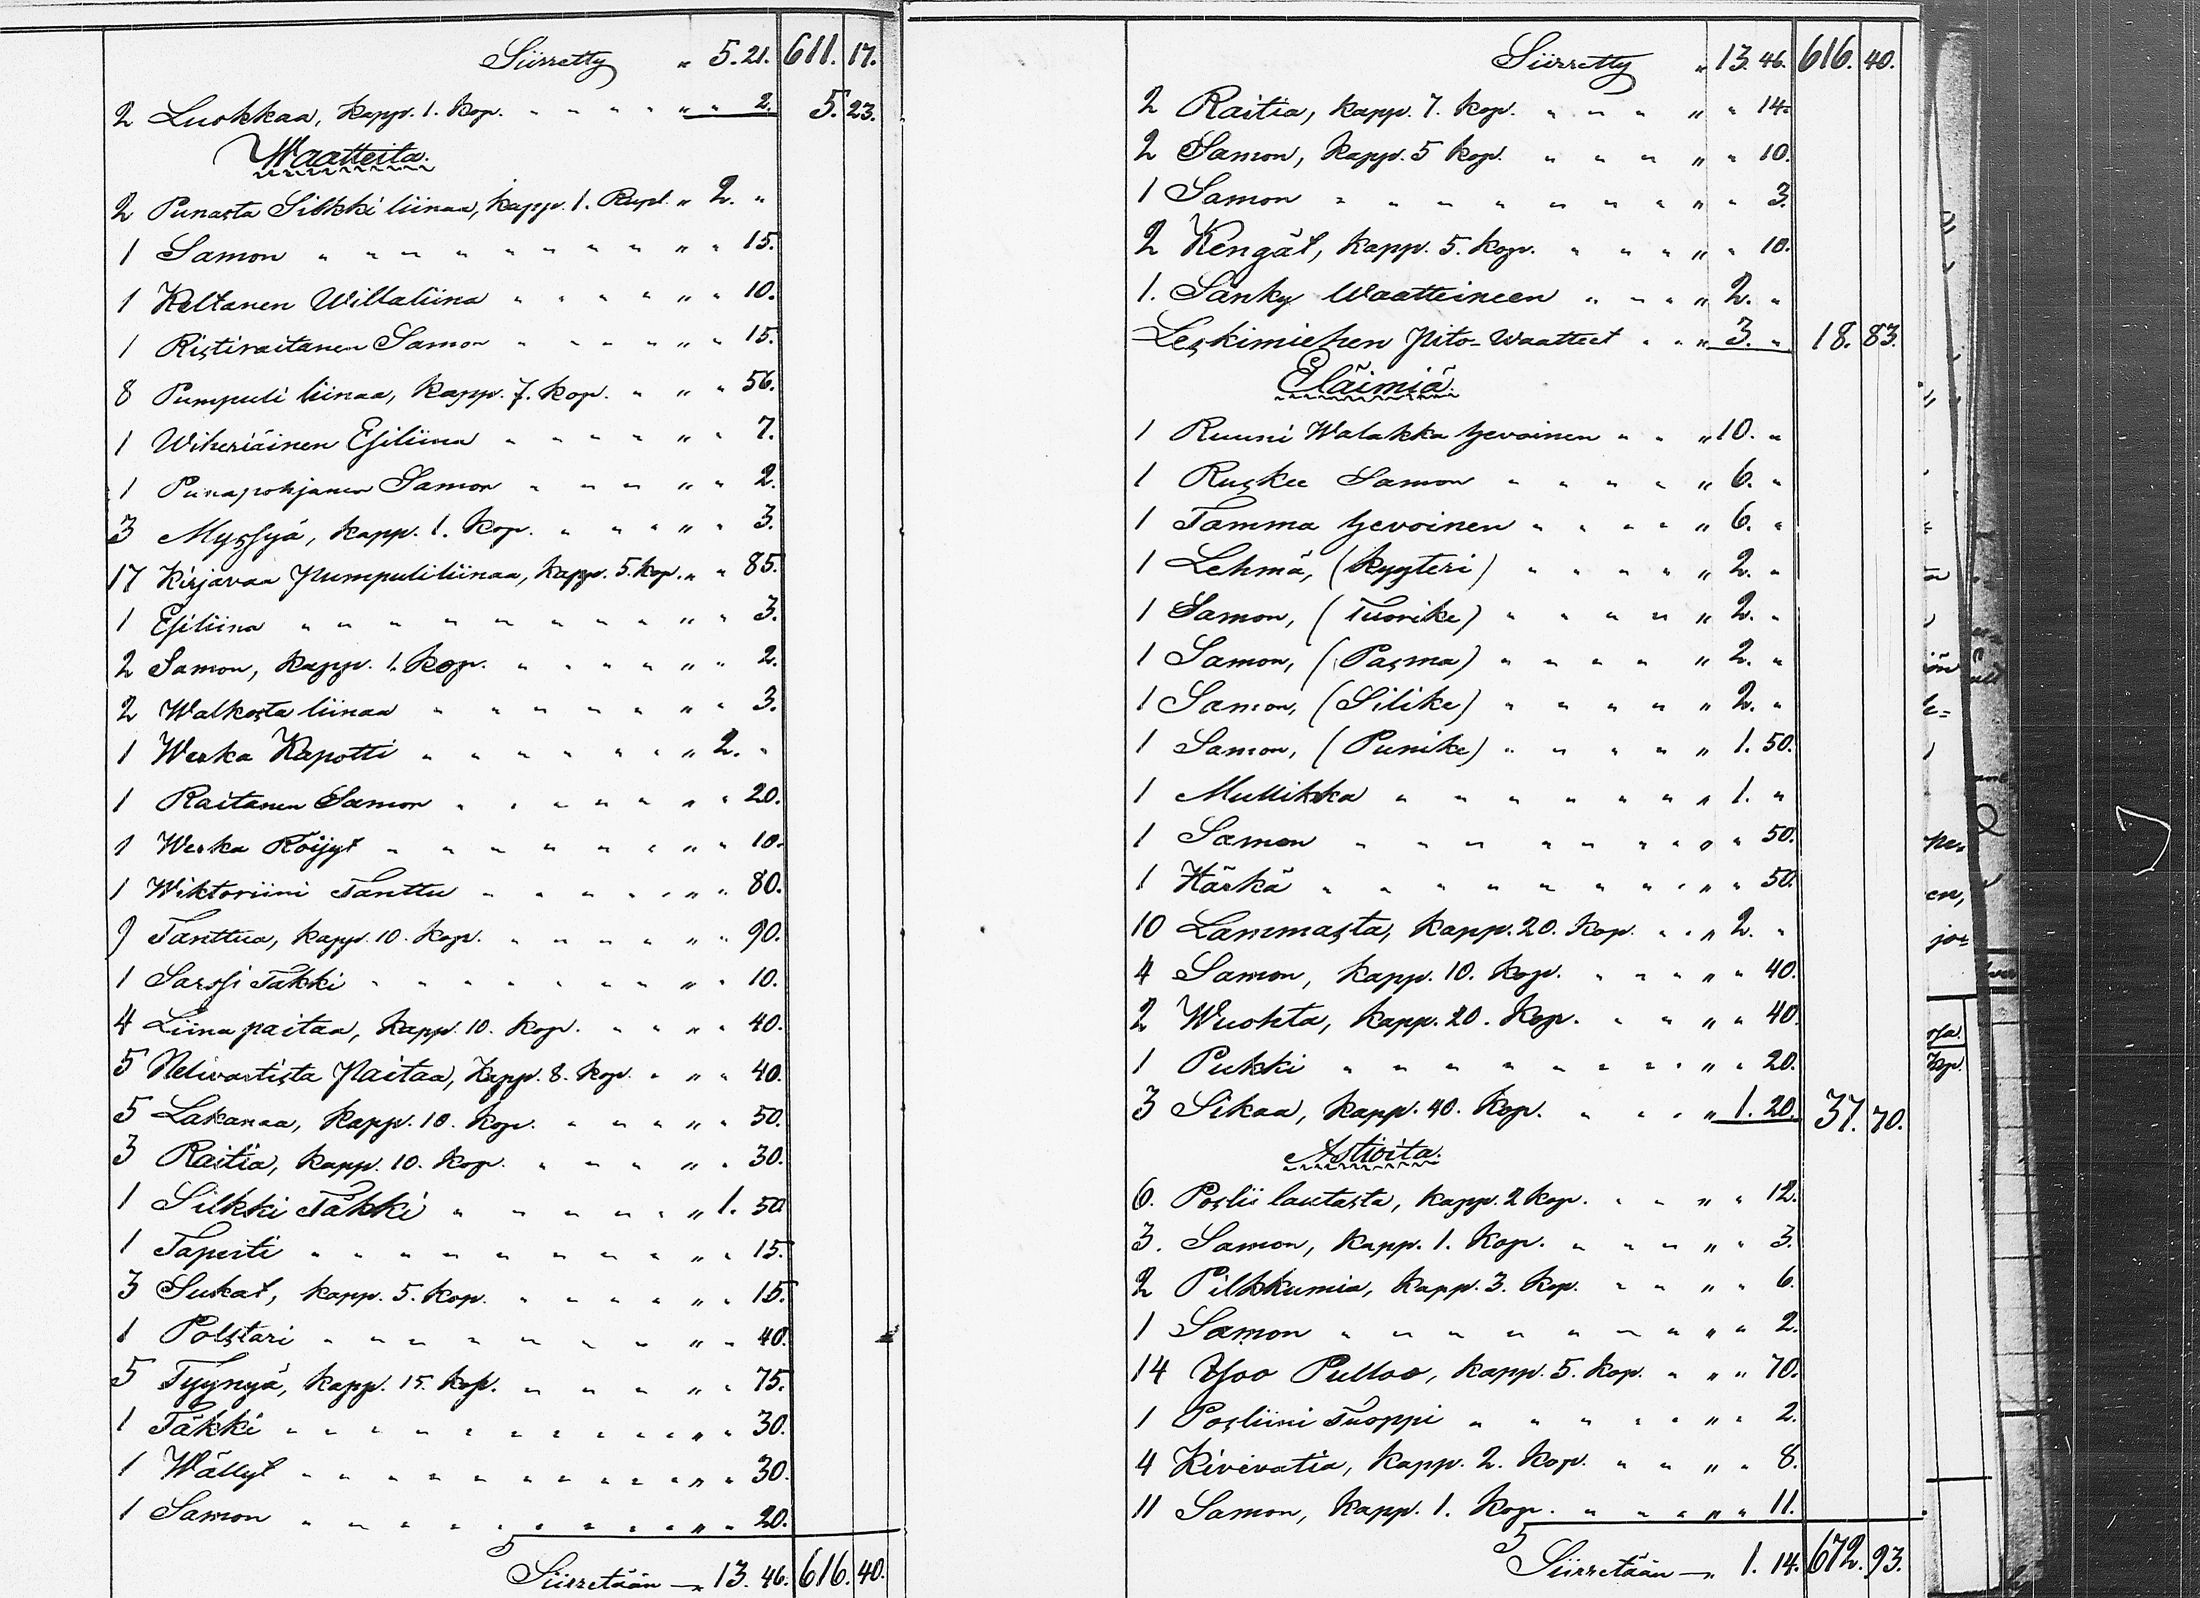 Siirretty " 5. 21. 611. 17.
2 Luokkaa, kapp. 1. kop. " " 2. 5. 23.
Waatteita.
2 Punasta Silkki liinaa, kapp. 1. Rupl. " 2. "
1 Samon " " 15.
1 Keltanen Willaliina " " 10.
1 Ristiraitanen Samon " " 15.
8 Pumpuli liinaa, kapp. 7. kop. " " 56.
1 Wiheriäinen Esiliina " " 7.
1 Punapohjanen Samon " " 2.
3 Myssyä, kapp. 1. kop. " " 3.
17 Kirjavaa Pumpuliliinaa, kapp. 5. kop. " " 85.
1 Esiliina " " 3.
2 Samon, kapp. 1. kop. " " 2.
2 Walkosta liinaa " " 3.
1 Werka Kapotti " 2. "
1 Raitanen Samon " " 20.
1 Werka Röijyt " " 10.
1 Wiktoriini Tanttu " " 80.
9 Tanttua, kapp. 10. kop. " " 90.
1 Sarssi Takki " " 10.
4 Liina paitaa, kapp. 10. kop. " " 40.
5 Nelivartista Paitaa, kapp. 8. kop. " " 40.
5 Lakanaa, kapp. 10. kop. " " 50.
3 Raitia, kapp. 10. kop. " " 30.
1 Silkki Täkki " 1. 50
1 Tapeiti " " 15.
3 Sukat, kapp. 5. kop. " " 15.
1 Polstari " " 40.
5 Tyynyä, kapp. 15. kop. " " 75.
1 Täkki " " 30.
1 Wällyt " " 30.
1 Samon " " 20.
Siirretään — 13. 46. 616. 40.
Siirretty " 13. 46. 616. 40.
2 Raitia, kapp. 7. kop. " " 14.
2 Samon, kapp. 5 kop. " " 10.
1 Samon " " 3.
2 Kengät, kapp. 5. kop. " " 10.
1. Sänky Waatteineen " 2. "
Leskimiehen Pito-Waatteet " 3. " 18. 83.
Eläimiä.
1 Ruuni Walakka hevoinen " 10. "
1 Ruskee Samon " 6. "
1 Tamma hevoinen " 6. "
1 Lehmä, (Kyyteri) " 2. "
1 Samon, (Tuorike) " 2. "
1 Samon, (Pasma) " 2. "
1 Samon, (Silike) " 2. "
1 Samon, (Punike) " 1. 50.
1 Mullikka " 1. "
1 Samon " " 50.
1 Härkä " " 50.
10 Lammasta, kapp. 20. kop. " 2. "
4 Samon, kapp. 10. kop. " " 40.
2 Wuohta, kapp. 20. kop. " " 40.
1 Pukki " " 20.
3 Sikaa, kapp. 40. kop. " 1. 20. 37. 70.
Astioita.
6. Poslii lautasta, kapp. 2 kop. " " 12.
3. Samon, kapp. 1. kop. " " 3.
2 Pilkkumia, kapp. 3. kop. " " 6.
1 Samon " " 2.
14 Isoo Pulloo, kapp. 5. kop. " " 70.
1 Posliini Tuoppi " " 2.
4 Kivivatia, kapp. 2. kop. " " 8.
11 Samon, kapp. 1. kop. " " 11.
Siirretään — 1. 14. 672. 93.